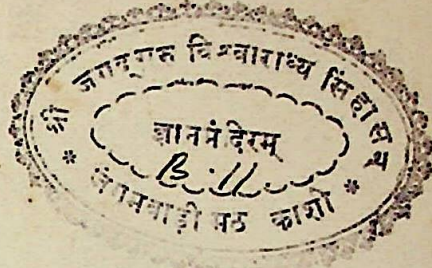 श्री जगद्गुरु विश्वाराध्य सिंहासन
ज्ञानमंदिरम्
B.11
* जंगमवाड़ी मठ काशी *